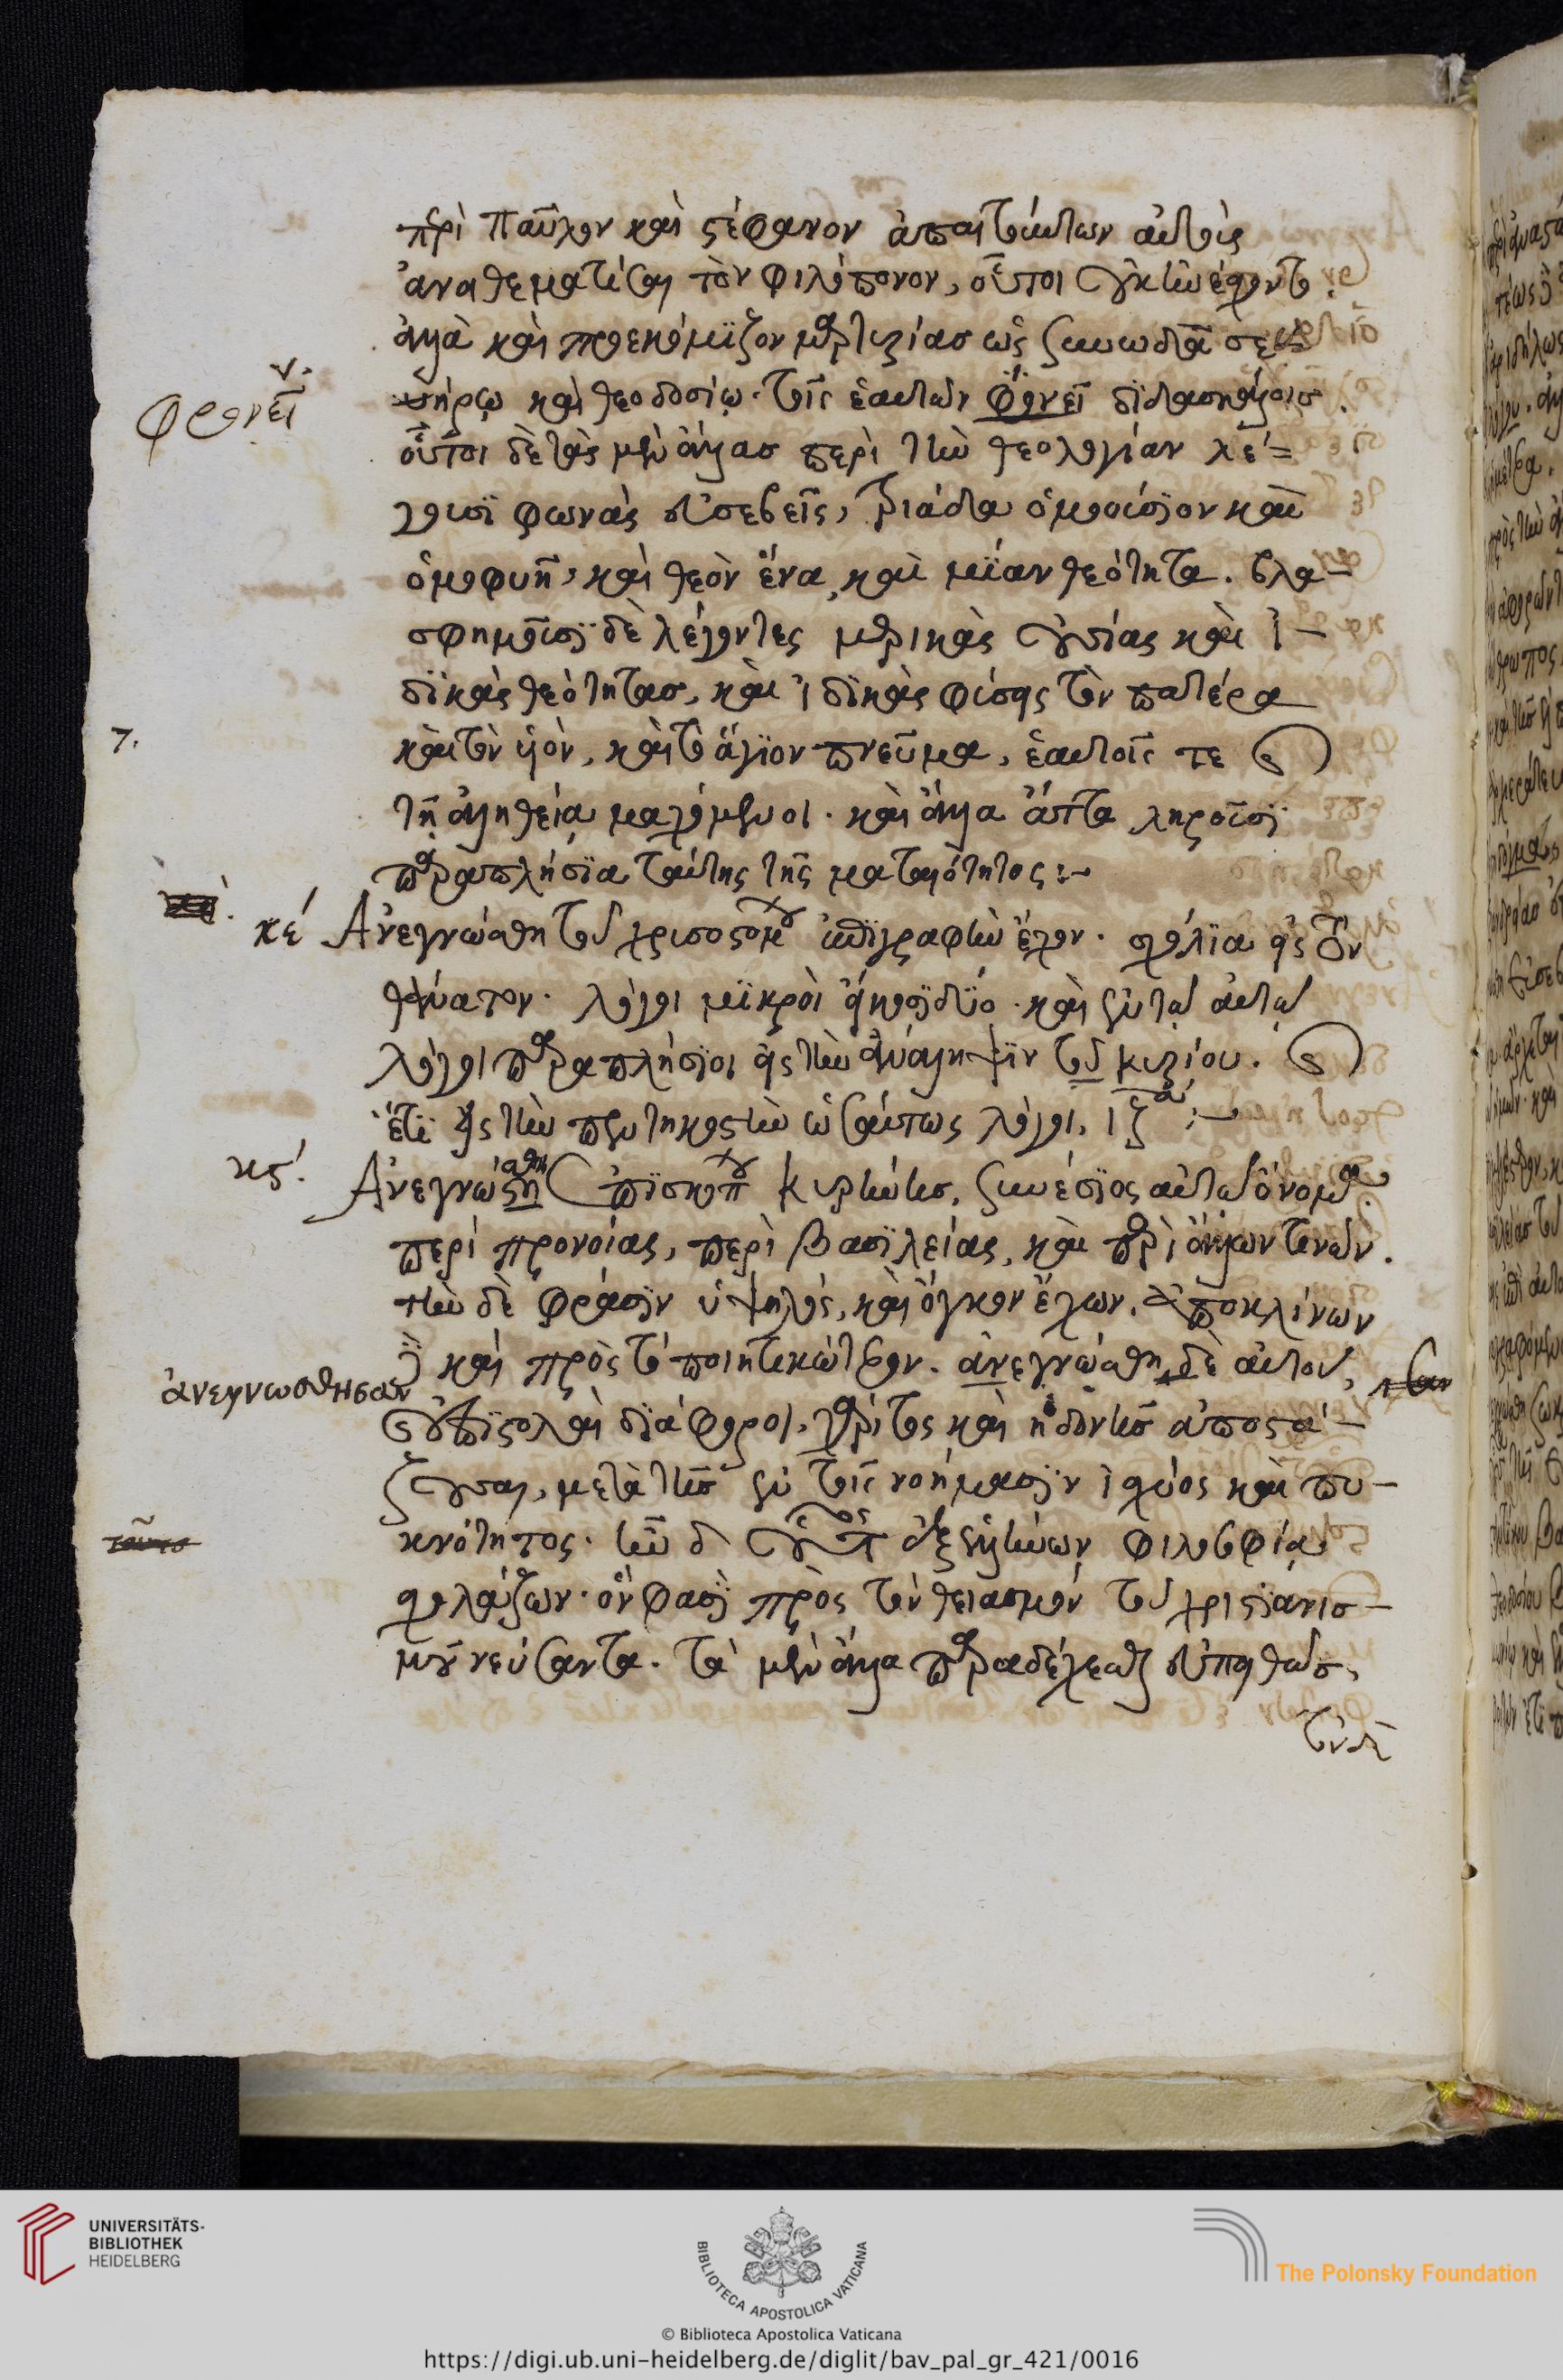 περὶ παῦλον καὶ στέφανον ἀπαιτούντων αὐτοὺς
ἀναθεματίσαι τὸν φιλόπονον, οὗτοι οὐκ ἠνέσχοντο.
ἀλλὰ καὶ προεκόμιζον μαρτυρίας ὡς συνωδὰ σε
υήρω καὶ θεοδοσίω. τοῖς ἑαυτῶν φρονεῖ διδασκάλοις.
φρονεῖ
οὗτοι δὲ τὰς μὲν ἄλλας περὶ τὴν θεολογίαν λέ=
γουσι φωνὰς εὐσεβεῖς, τριάδα ὁμοούσιον καὶ
ὁμοφυῆ, καὶ θεὸν ἕνα, καὶ μίαν θεότητα. βλα-
σφημοῦσι δὲ λέγοντες μερικὰς οὐσίας καὶ ἰ-
δικὰς θεότητας, καὶ ἰδικὰς φύσεις τὸν πατέρα
7.
καὶ τὸν υἱὸν, καὶ τὸ ἅγιον πνεῦμα, ἑαυτοῖς τε καὶ
τῇ ἀληθείᾳ μαχόμενοι. καὶ ἄλλα ἄττα ληροῦσι
παραπλήσια ταύτης τῆς ματαιότητος:-
κε΄ Ἀνεγνώσθη τοῦ χρυσοστόμου ἐπιγραφὴν ἔχον. σχόλια εἰς τὸν
θάνατον. λόγοι μικροὶ εἴκοσι δύο. καὶ ἐν ταυτῶ αὐτοῦ
λόγοι παραπλήσιοι εἰς τὴν ἀνάληψιν τοῦ κυρίου. καὶ
ἔτι εἰς τὴν πεντηκοστὴν ὡσαύτως λόγοι, ιζ:-
κς΄. Ἀνεγνώσθη ἐπισκόπου κυρήνης, συνέσιος αὐτῶ ὄνομα.
περὶ προνοίας, περὶ βασιλείας, καὶ περὶ ἄλλων τινῶν.
τὴν δὲ φράσιν ὑψηλὸς, καὶ ὄγκον ἔχων, ἀποκλίνων
δὲ καὶ πρὸς τὸ ποιητικώτερον. ἀνεγνώσθη δὲ αὐτοῦ, σαν
ἀνεγνωσθησαν
καὶ ἐπιστολαὶ διάφοροι, χάριτος καὶ ἡδονῆς ἀποστά-
ζουσαι, μετὰ τῆς ἐν τοῖς νοήμασιν ἰσχύος καὶ πυ-
κνότητος. ἦν δ οὗτος ἐξ ἑλλήνων φιλοσοφία
ταῦτα
σχολάζων. ὃν φασὶ πρὸς τὸν θειασμὸν τοῦ χριστιανισ-
μοῦ νεύσαντα. τὰ μὲν ἄλλα παραδέχεσθαι εὐπειθῶς,
τὸν δὲ
UNIVERSITÄTS-
BIBLIOTHEK
HEIDELBERG
BIBLIOTECA APOSTOLICA VATICANA
The Polonsky Foundation
© Biblioteca Apostolica Vaticana
https://digi.ub.uni-heidelberg.de/diglit/bav_pal_gr_421/0016